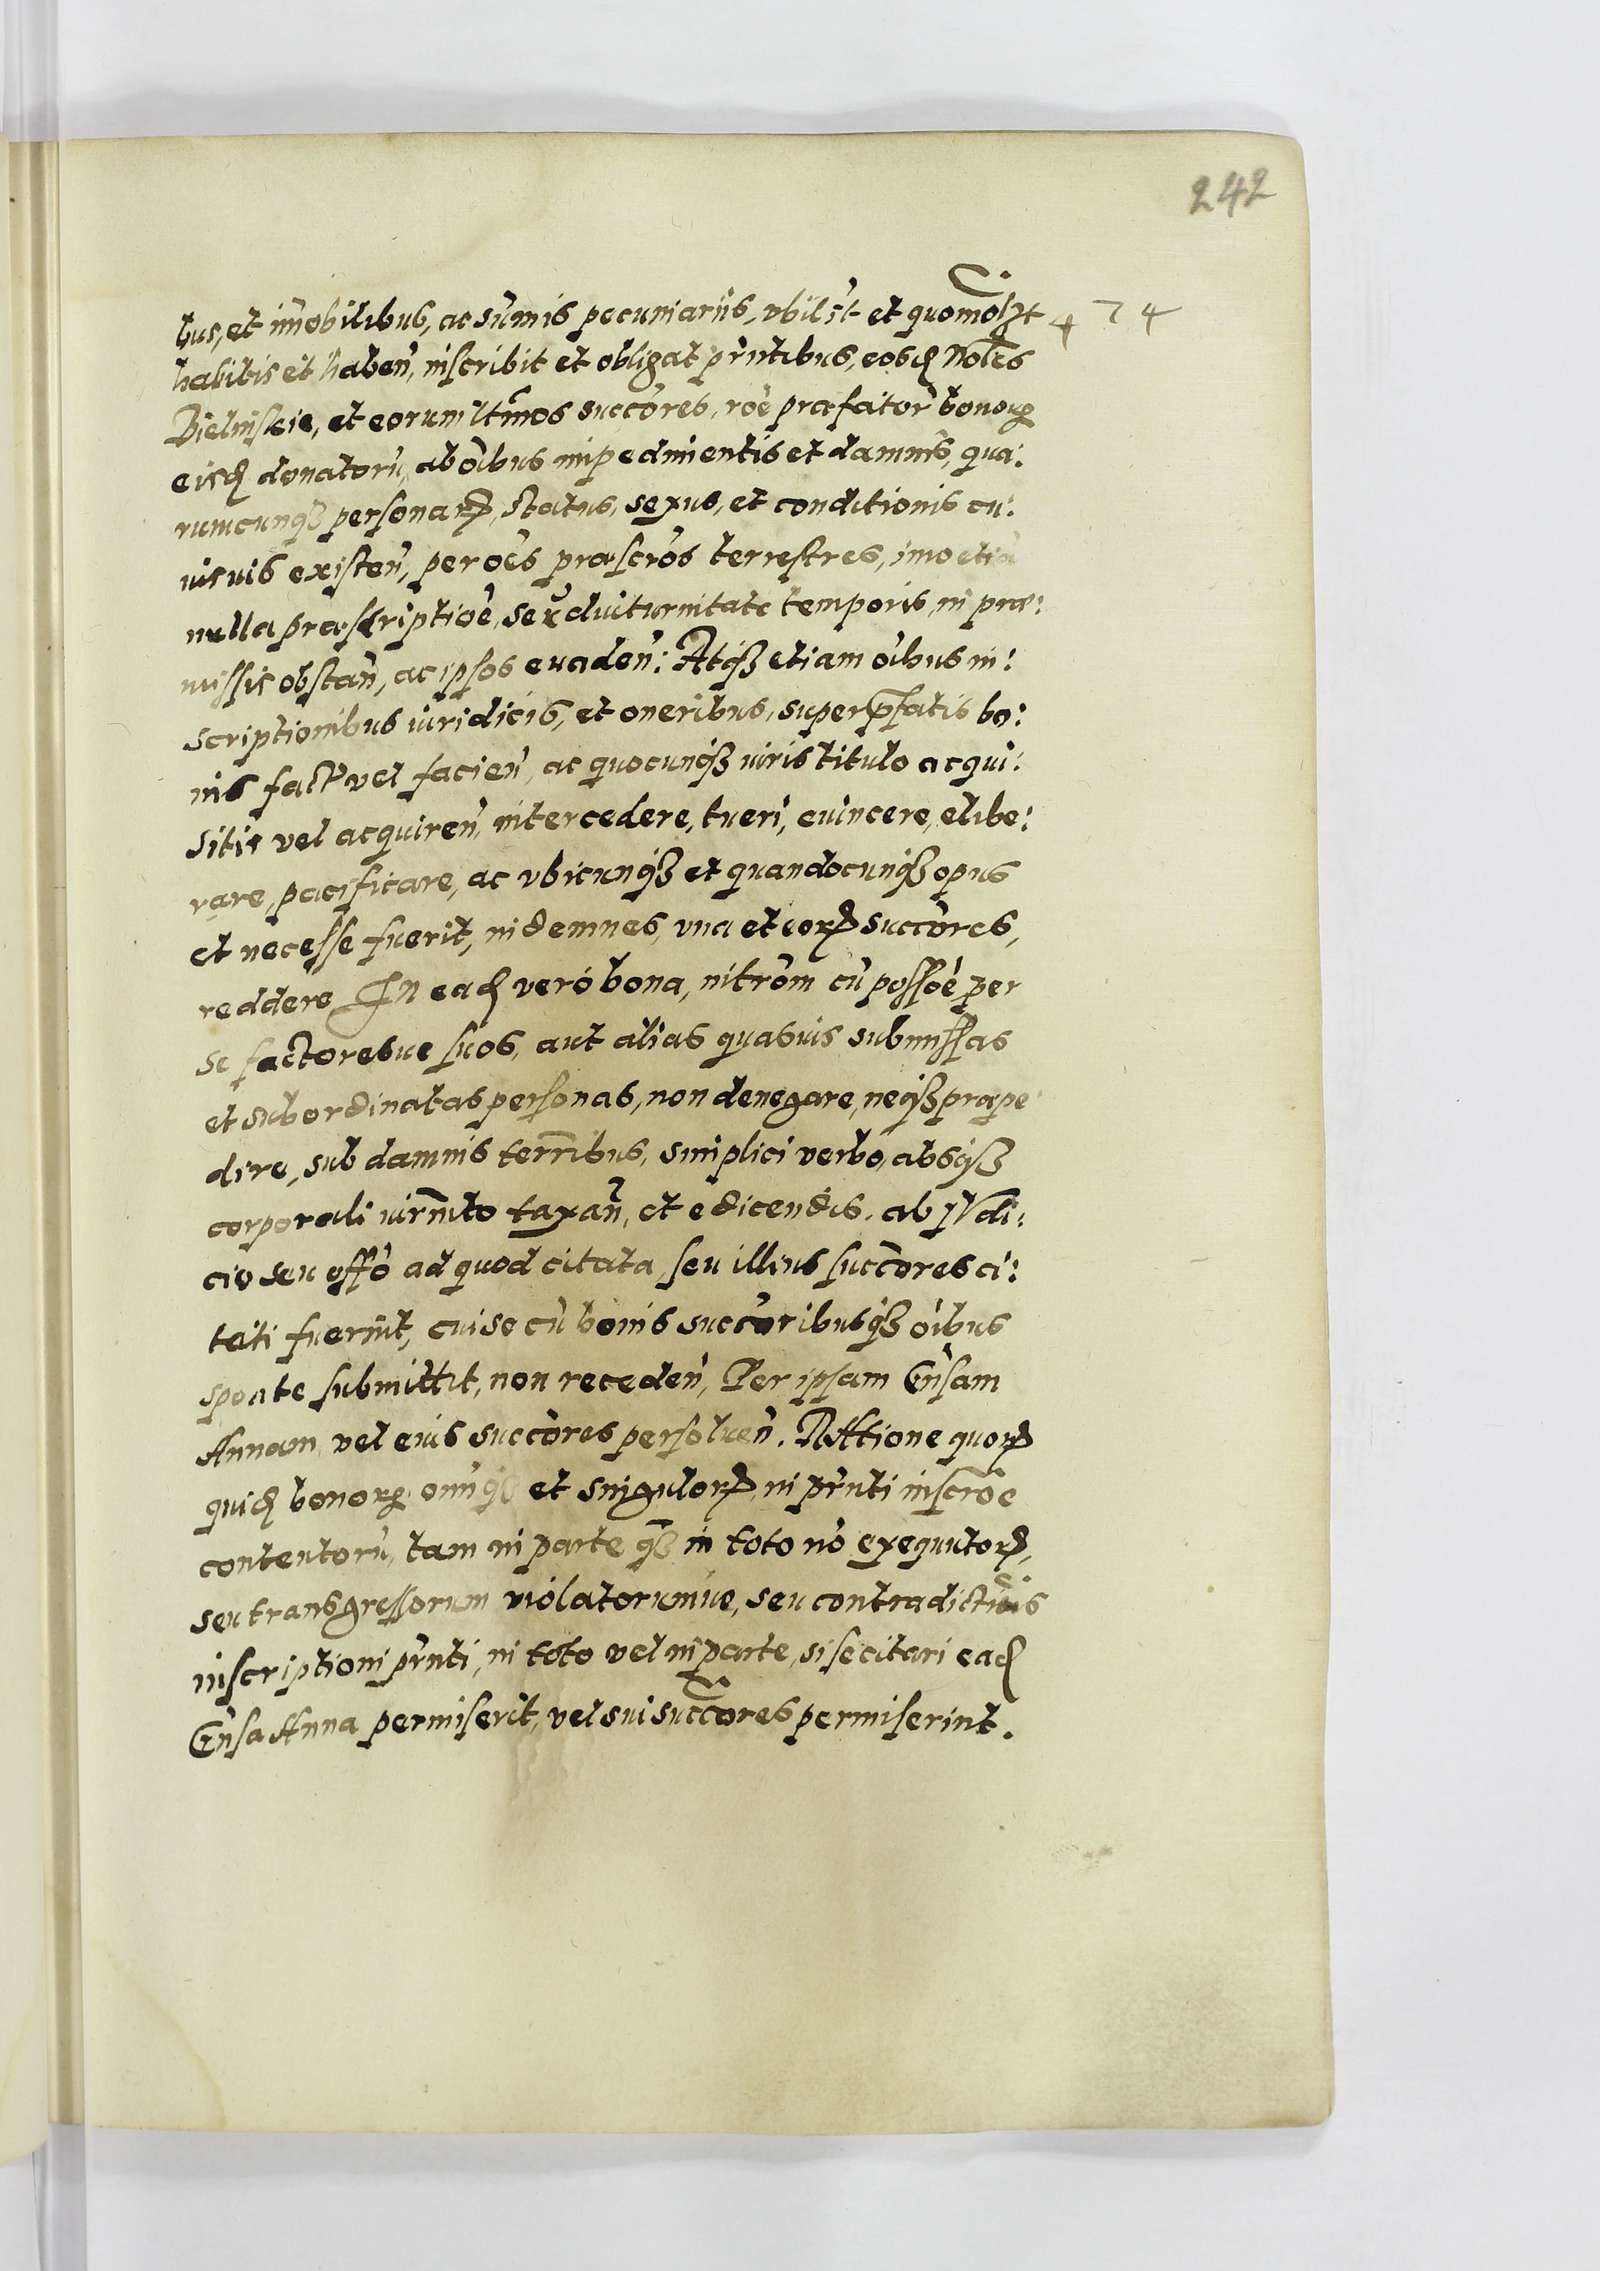 242
bus, et im̃obilibus, ac sum̃is pecuniariis, vbilib́t et quomõlibt 474
habitis et haben̄, inscribit et obligat pr̃ntibus, eosd̨ Nobłes
Bielinskie, et eorum łtimos succores, rõe præfator̃ bonorꝝ
eisd̨ donatorũ, ab oĩbus impedimentis et damnis, qua:
rumcunqꝫ personarꝝ, status, sexus, et conditionis cu:
iusuis existen̄, per oẽs præscr̃os terrestres, imo etiã
nulla præscriptiõe, seu diuturnitate temporis, in præ:
missis obstan̄, ac ipsos euaden̄: Atqꝫ etiam oĩbus in:
scriptionibus iuridicis, et oneribus, super pr̃fatis bo:
nis fact̃ vel facien̄, ac quocunqꝫ iuris titulo acqui:
sitis vel acquiren̄, intercedere, tueri, euincere, elibe:
rare, pacificare, ac vbicunqꝫ et quandocunqꝫ opus
et necesse fuerit, indemnes, vna et eorꝝ succores,
reddere In ead̨ vero bona, intr̃om cũ possõe per
se factoresue suos, aut alias quasuis submissas
et subordinatas personas, non denegare, neqꝫ præpe
dire, sub damnis terr̃ibus, simplici verbo, absqꝫ
corporali iurm̃to taxan̄, et edicendis. ab iudi:
cio seu offõ ad quod citata seu illius succores ci:
tati fuerint, cui se cũ bonis succoribusqꝫ oĩbus
sponte submittit, non receden̄, Per ipsam Gñsam
Annam, vel eius succores persoluen̄. Rattione quorꝝ
quid̨ bonorꝝ om̃iqꝫ et singulorꝝ, in pr̃nti inscr̃õe
contentorũ, tam in parte qꝫ in toto nõ exequutorꝝ,
seu transgressorum violatorumue, seu contradictionis
inscriptioni pr̃nti, in toto vel in parte, si se citari ead̨
Gñsa Anna permiserit, vel sui succores permiserint.